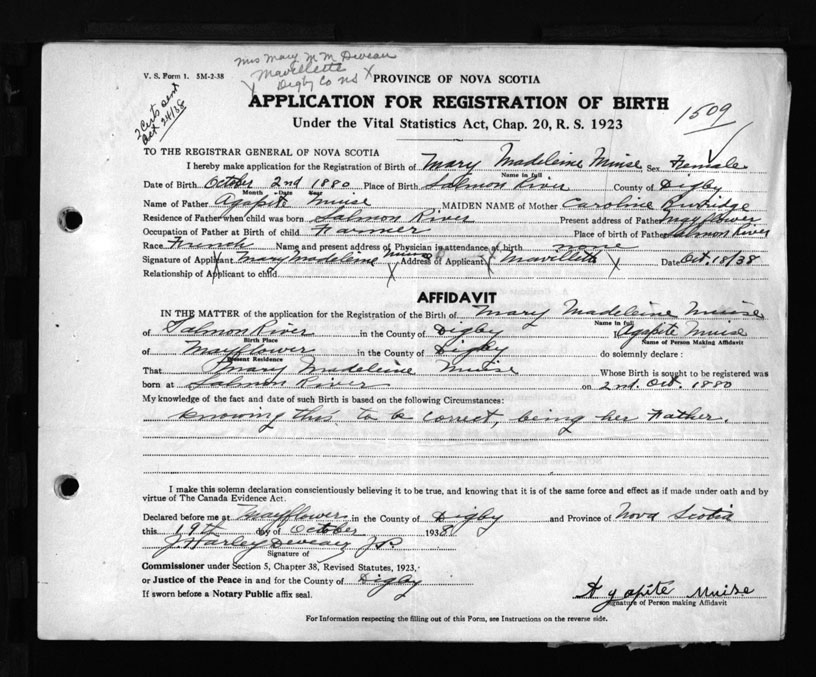 Mrs Mary M M Deveau
V. S. Form 1. 5M-2-38
Mavillette
X Digby Co NS X
PROVINCE OF NOVA SCOTIA
2 Certs sent
Oct 24/38
APPLICATION FOR REGISTRATION OF BIRTH
1509
Under the Vital Statistics Act, Chap. 20, R. S. 1923
TO THE REGISTRAR GENERAL OF NOVA SCOTIA
I hereby make application for the Registration of Birth of Mary Madeleine Muise, Sex Female
Name in full
Date of Birth October 2nd 1880 Place of Birth Salmon River County of Digby
Month Day Year
Name of Father Agapite Muise MAIDEN NAME of Mother Caroline
Residence of Father when child was born Salmon River Present address of Father Mayflower
Occupation of Father at Birth of child Farmer Place of birth of Father Salmon River
Race French Name and present address of Physician in attendance at birth none
Signature of Applicant Mary Madeleine Muise Address of Applicant X Mavillette X Date Oct. 18/38
Relationship of Applicant to child
AFFIDAVIT
IN THE MATTER of the application for the Registration of the Birth of Mary Madeleine Muise
Name in full
of Salmon River in the County of Digby I, Agapite Muise
Birth Place
Name of Person Making Affidavit
of Mayflower in the County of Digby do solemnly declare :
Present Residence
That Mary Madeleine Muise Whose Birth is sought to be registered was
born at Salmon River on 2nd Oct. 1880
My knowledge of the fact and date of such Birth is based on the following Circumstances:
Knowing this to be correct, being her Father.
I make this solemn declaration conscientiously believing it to be true, and knowing that it is of the same force and effect as if made under oath and by
virtue of The Canada Evidence Act.
Declared before me at Mayflower in the County of Digby and Province of Nova Scotia
this 19th day of October 1938
J. Harley Deveau J P.
Signature of
Commissioner under Section 5, Chapter 38, Revised Statutes, 1923,
or Justice of the Peace in and for the County of Digby
If sworn before a Notary Public affix seal.
Agapite Muise
Signature of Person making Affidavit
For Information respecting the filling out of this Form, see Instructions on the reverse side.